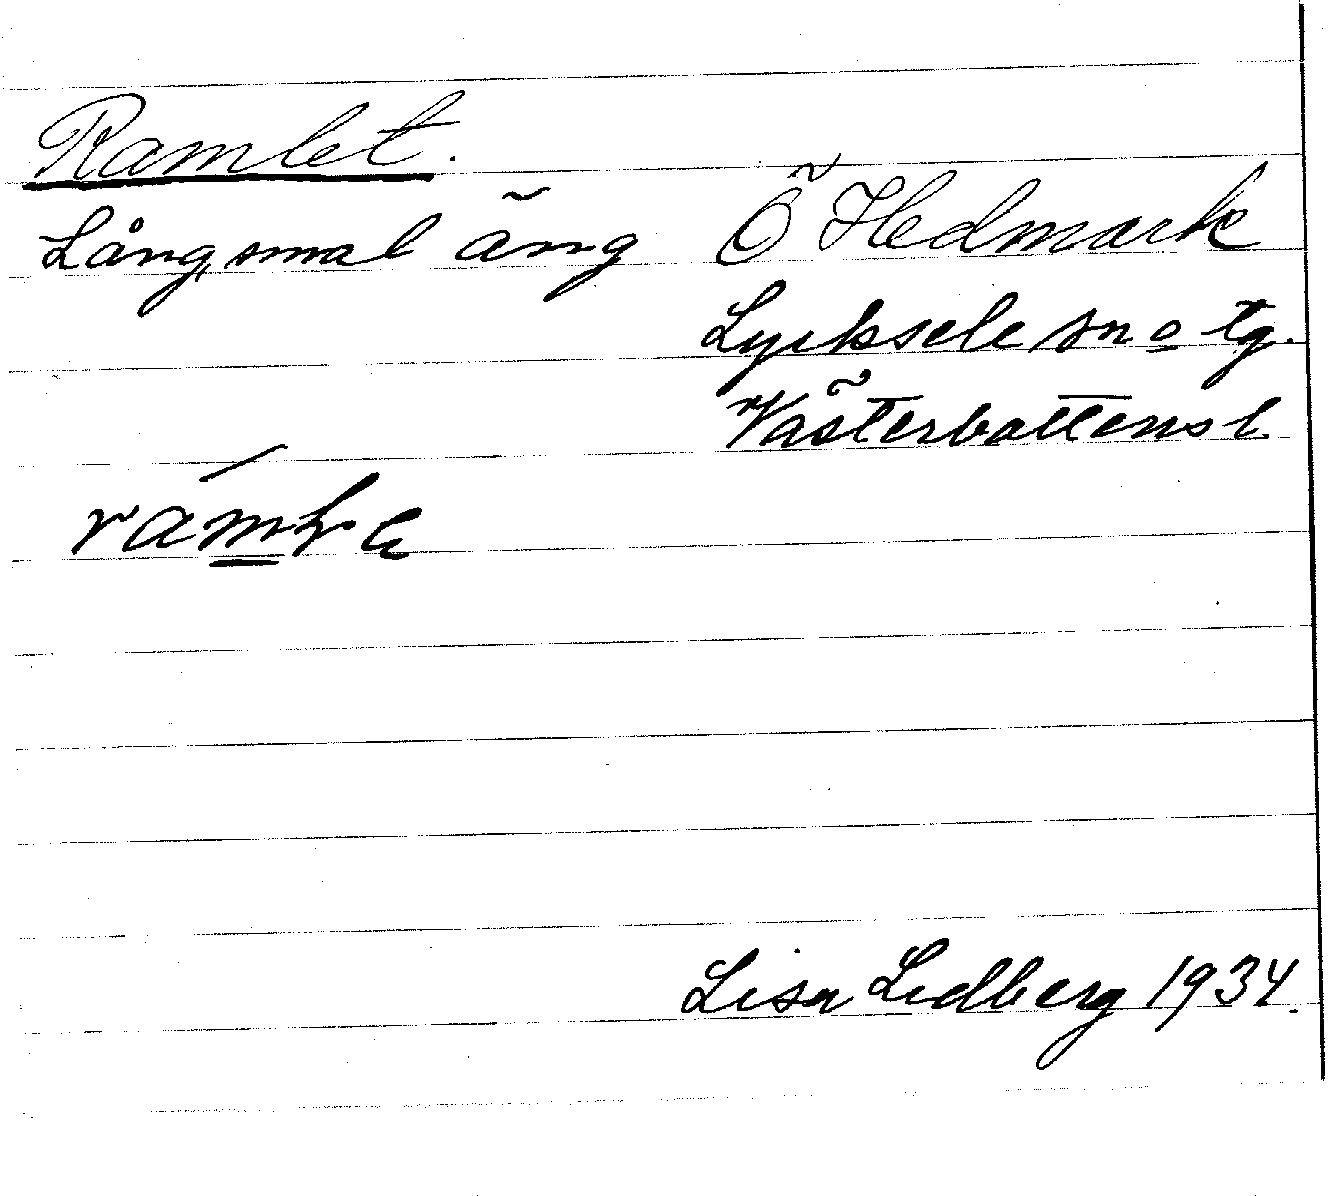 Ramlet.
Lång, smal äng
Ö Hedmark
Lycksele sn o tg.
Västerbottensl.
Lisa Lidberg 1934.